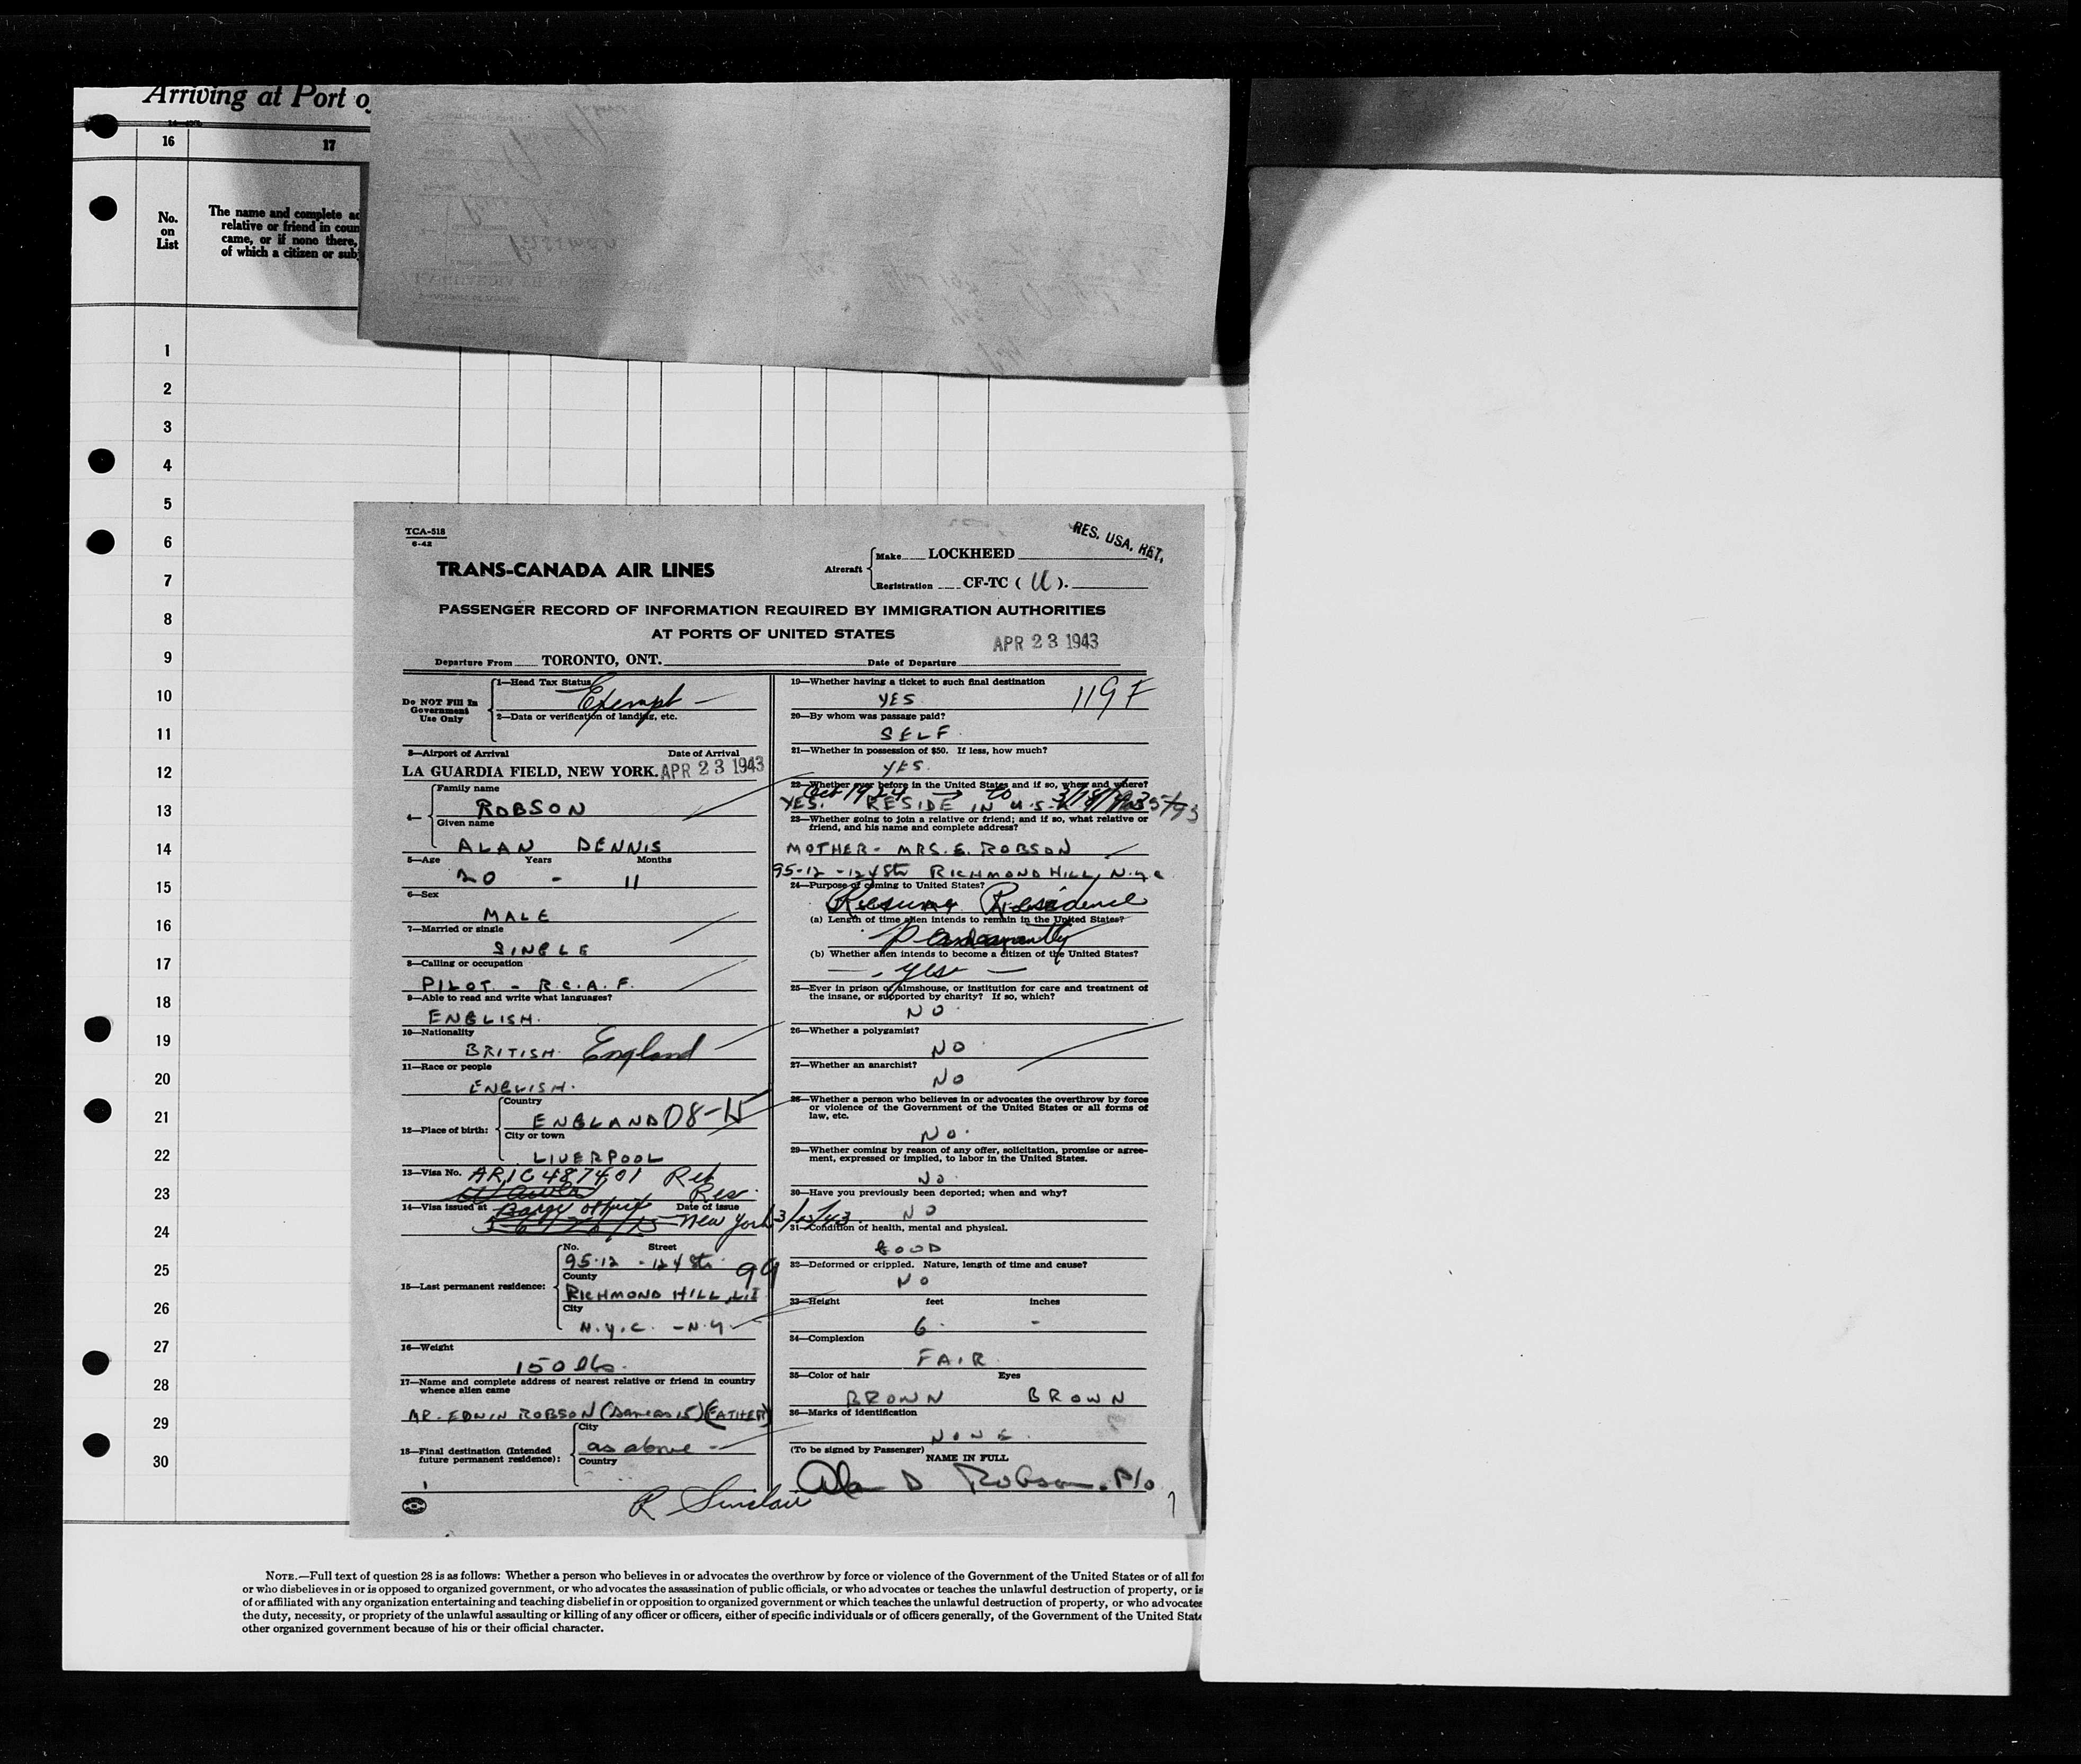 Arriving at Port o
16 17
No.
on
List
The name and complete ad
relative or friend in coun
came, or if none there,
of which a citizen or sub
1
2
3
4
5
6
7
8
9
10
11
12
13
14
15
16
17
18
19
20
21
22
23
24
25
26
27
28
29
30
TCA-518
6-42
RES. USA. RET.
TRANS-CANADA AIR LINES
Aircraft
Make LOCKHEED
Registration CF-TC ( U ).
PASSENGER RECORD OF INFORMATION REQUIRED BY IMMIGRATION AUTHORITIES
AT PORTS OF UNITED STATES
APR 23 1943
Departure From TORONTO, ONT. Date of Departure
Do NOT Fill In
Government
Use Only
1—Head Tax Status
Exempt —
2—Data or verification of landing, etc.
3—Airport of Arrival Date of Arrival
LA GUARDIA FIELD, NEW YORK. APR 23 1943
4—
Family name
ROBSON
Given name
ALAN DENNIS
5—Age Years Months
20 - 11
6—Sex
MALE
7—Married or single
SINGLE
8—Calling or occupation
PILOT. - R.C.A.F.
9—Able to read and write what languages?
ENGLISH.
10—Nationality
BRITISH. England
11—Race or people
ENGLISH.
12—Place of birth:
Country
ENGLAND 08-15
City or town
LIVERPOOL
13—Visa No. ARIC 487401 Ret
Res.
14—Visa issued at Barge office Date of issue
New York 3/15/43
15—Last permanent residence:
No. Street
95-12 - 124 Str. 99
County
RICHMOND HILL, L.I
City
N.Y.C. - N.Y.
16—Weight
150 lbs.
17—Name and complete address of nearest relative or friend in country
whence alien came
MR. EDWIN ROBSON (Same as 15) (FATHER)
18—Final destination (Intended
future permanent residence):
City
as above -
Country
19—Whether having a ticket to such final destination
YES. 119 F
20—By whom was passage paid?
SELF.
21—Whether in possession of $50. If less, how much?
YES.
22—Whether ever before in the United States and if so, when and where?
Oct 1924 to
YES. RESIDE IN U.S.
23—Whether going to join a relative or friend; and if so, what relative or
friend, and his name and complete address?
MOTHER - MRS. E. ROBSON
95-12 - 124 Str RICHMOND HILL, N.Y.C
24—Purpose of coming to United States?
Resume Residence
(a) Length of time alien intends to remain in the United States?
Permanently
(b) Whether alien intends to become a citizen of the United States?
— yes —
25—Ever in prison or almshouse, or institution for care and treatment of
the insane, or supported by charity? If so, which?
NO.
26—Whether a polygamist?
NO.
27—Whether an anarchist?
NO
28—Whether a person who believes in or advocates the overthrow by force
or violence of the Government of the United States or all forms of
law, etc.
NO.
29—Whether coming by reason of any offer, solicitation, promise or agree-
ment, expressed or implied, to labor in the United States.
NO.
30—Have you previously been deported; when and why?
NO
31—Condition of health, mental and physical.
GOOD
32—Deformed or crippled. Nature, length of time and cause?
NO
33—Height feet inches
6. -
34—Complexion
FAIR
35—Color of hair Eyes
BROWN BROWN
36—Marks of identification
NONE.
(To be signed by Passenger)
NAME IN FULL
Alan D Robson. P/o
R Sinclair
NOTE.—Full text of question 28 is as follows: Whether a person who believes in or advocates the overthrow by force or violence of the Government of the United States or of all for
or who disbelieves in or is opposed to organized government, or who advocates the assassination of public officials, or who advocates or teaches the unlawful destruction of property, or is
of or affiliated with any organization entertaining and teaching disbelief in or opposition to organized government or which teaches the unlawful destruction of property, or who advocates
the duty, necessity, or propriety of the unlawful assaulting or killing of any officer or officers, either of specific individuals or of officers generally, of the Government of the United State
other organized government because of his or their official character.